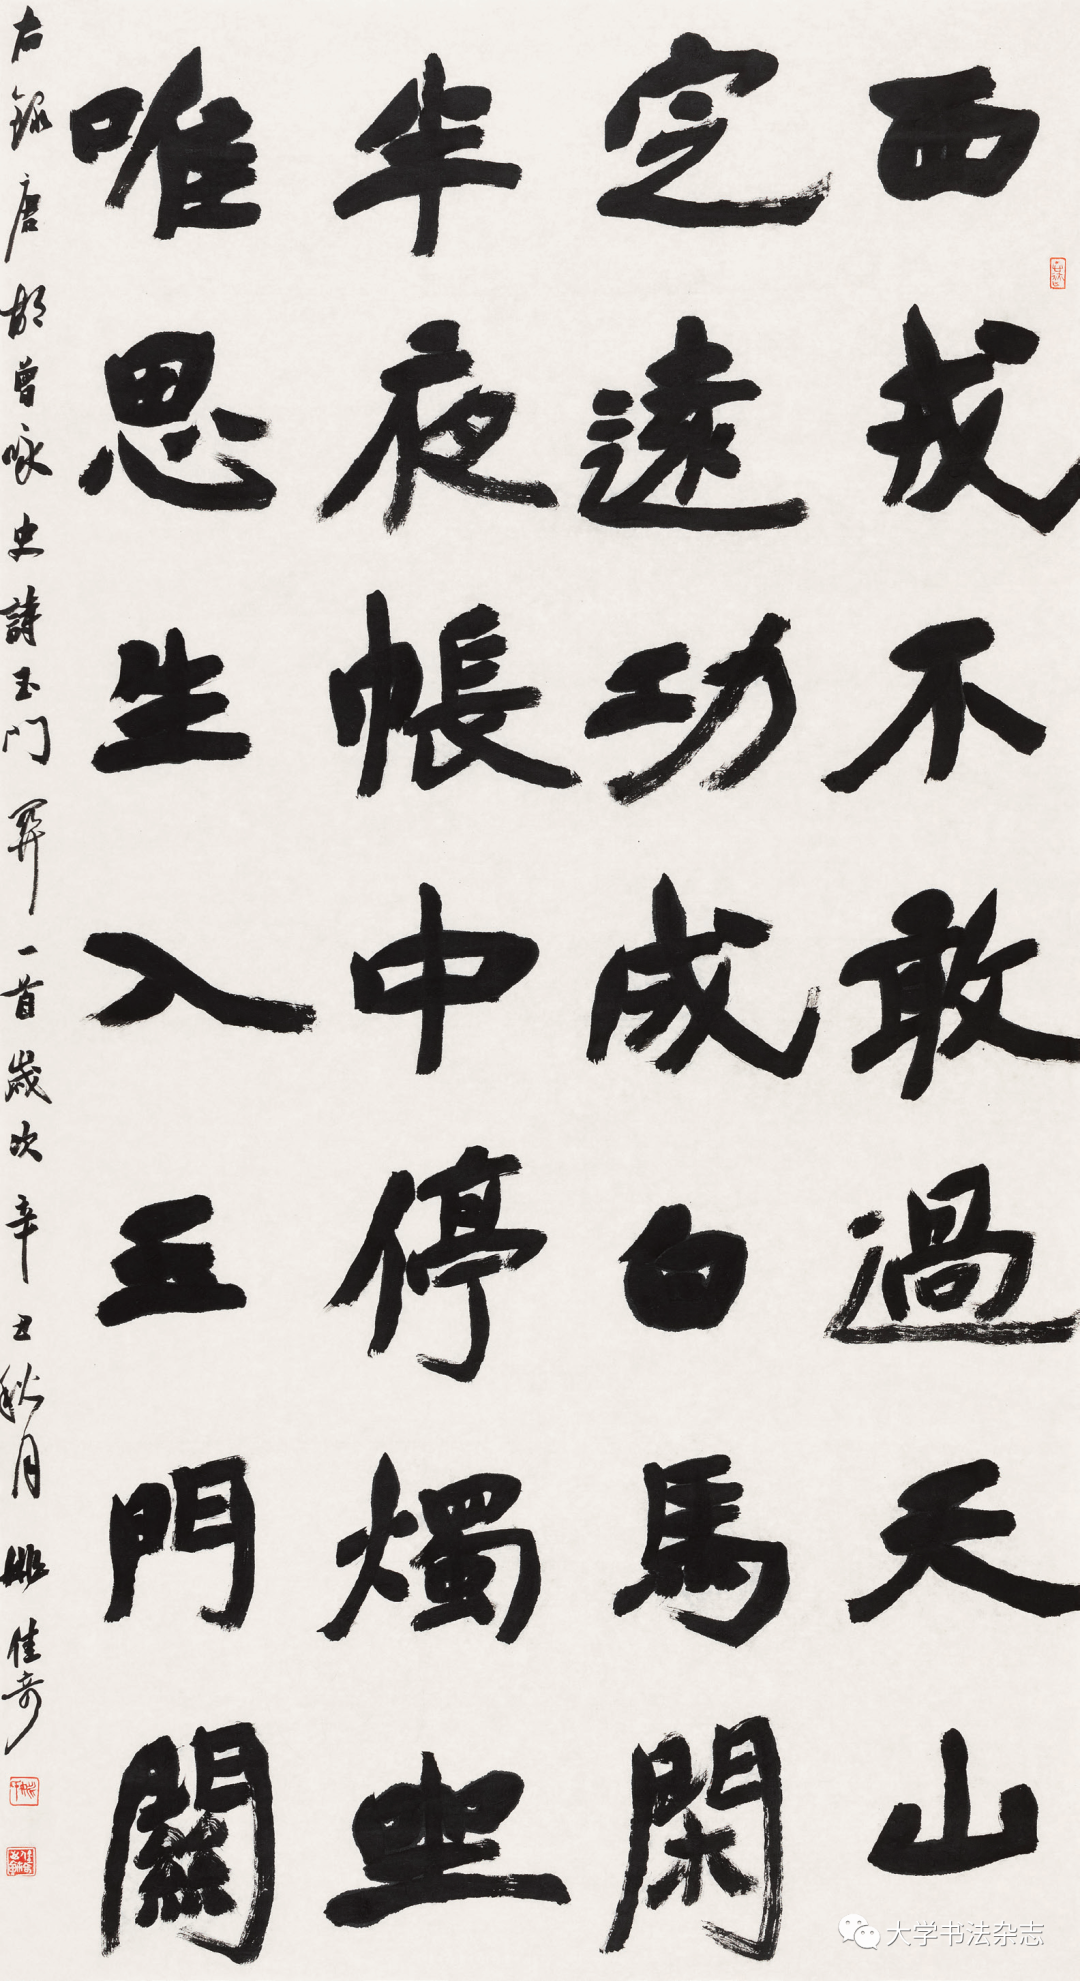 西戎不敢過天山
定遠功成白馬閑
半夜帳中停燭坐
唯思生入玉門關
右録唐胡曾咏史詩玉門關一首歲次辛丑秋月姚佳奇
大学书法杂志